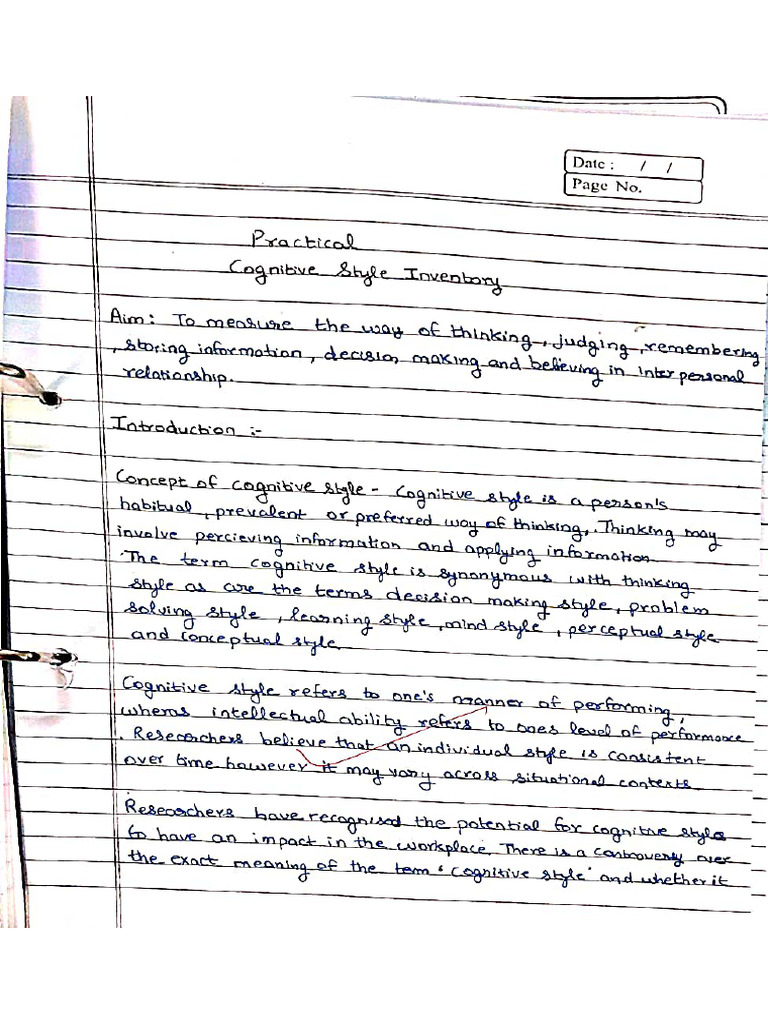 Date : / /
Page No.
Practical
Cognitive Style Inventory
Aim: To measure the way of thinking, judging, remembering
, storing information, decision making and believing in interpersonal
relationship.
Introduction :-
Concept of cognitive style - Cognitive style is a person's
habitual, prevalent or preferred way of thinking,. Thinking may
involve percieving information and applying information
The term cognitive style is synonymous with thinking
style as are the terms decision making style, problem
solving style, learning style, mind style, perceptual style
and conceptual style
Cognitive style refers to one's manner of performing,
wheras intellectual ability refers to ones level of performance
. Researchers believe that an individual style is consistent
over time however it may vary across situational contexts
Researchers have recognised the potential for cognitive style
to have an impact in the workplace. There is a controversy over
the exact meaning of the term 'cognitive style' and whether it